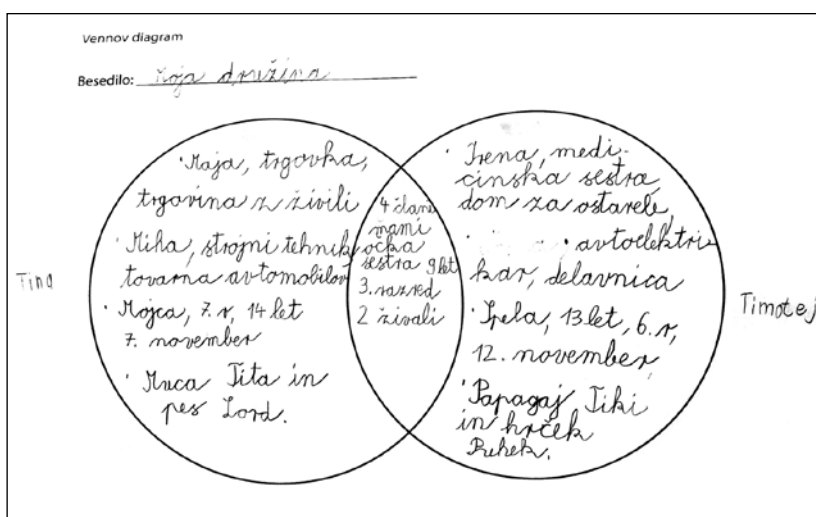 Vennov diagram
Besedilo: Moja družina
Tina
• Maja, trgovka,
trgovina z živili
• Miha, strojni tehnik
tovarna avtomobilov
• Mojca, 7. r, 14 let
7. november
• Muca Tita in
pes Lord.
4 člani
mami
očka
sestra 9 let
3. razred
2 živali
• Irena, medi-
cinska sestra,
dom za ostarele,
• avtoelektri
kar, delavnica
• Špela, 13 let, 6. r,
12. november,
• Papagaj Tiki
in hrček
Puhek.
Timotej